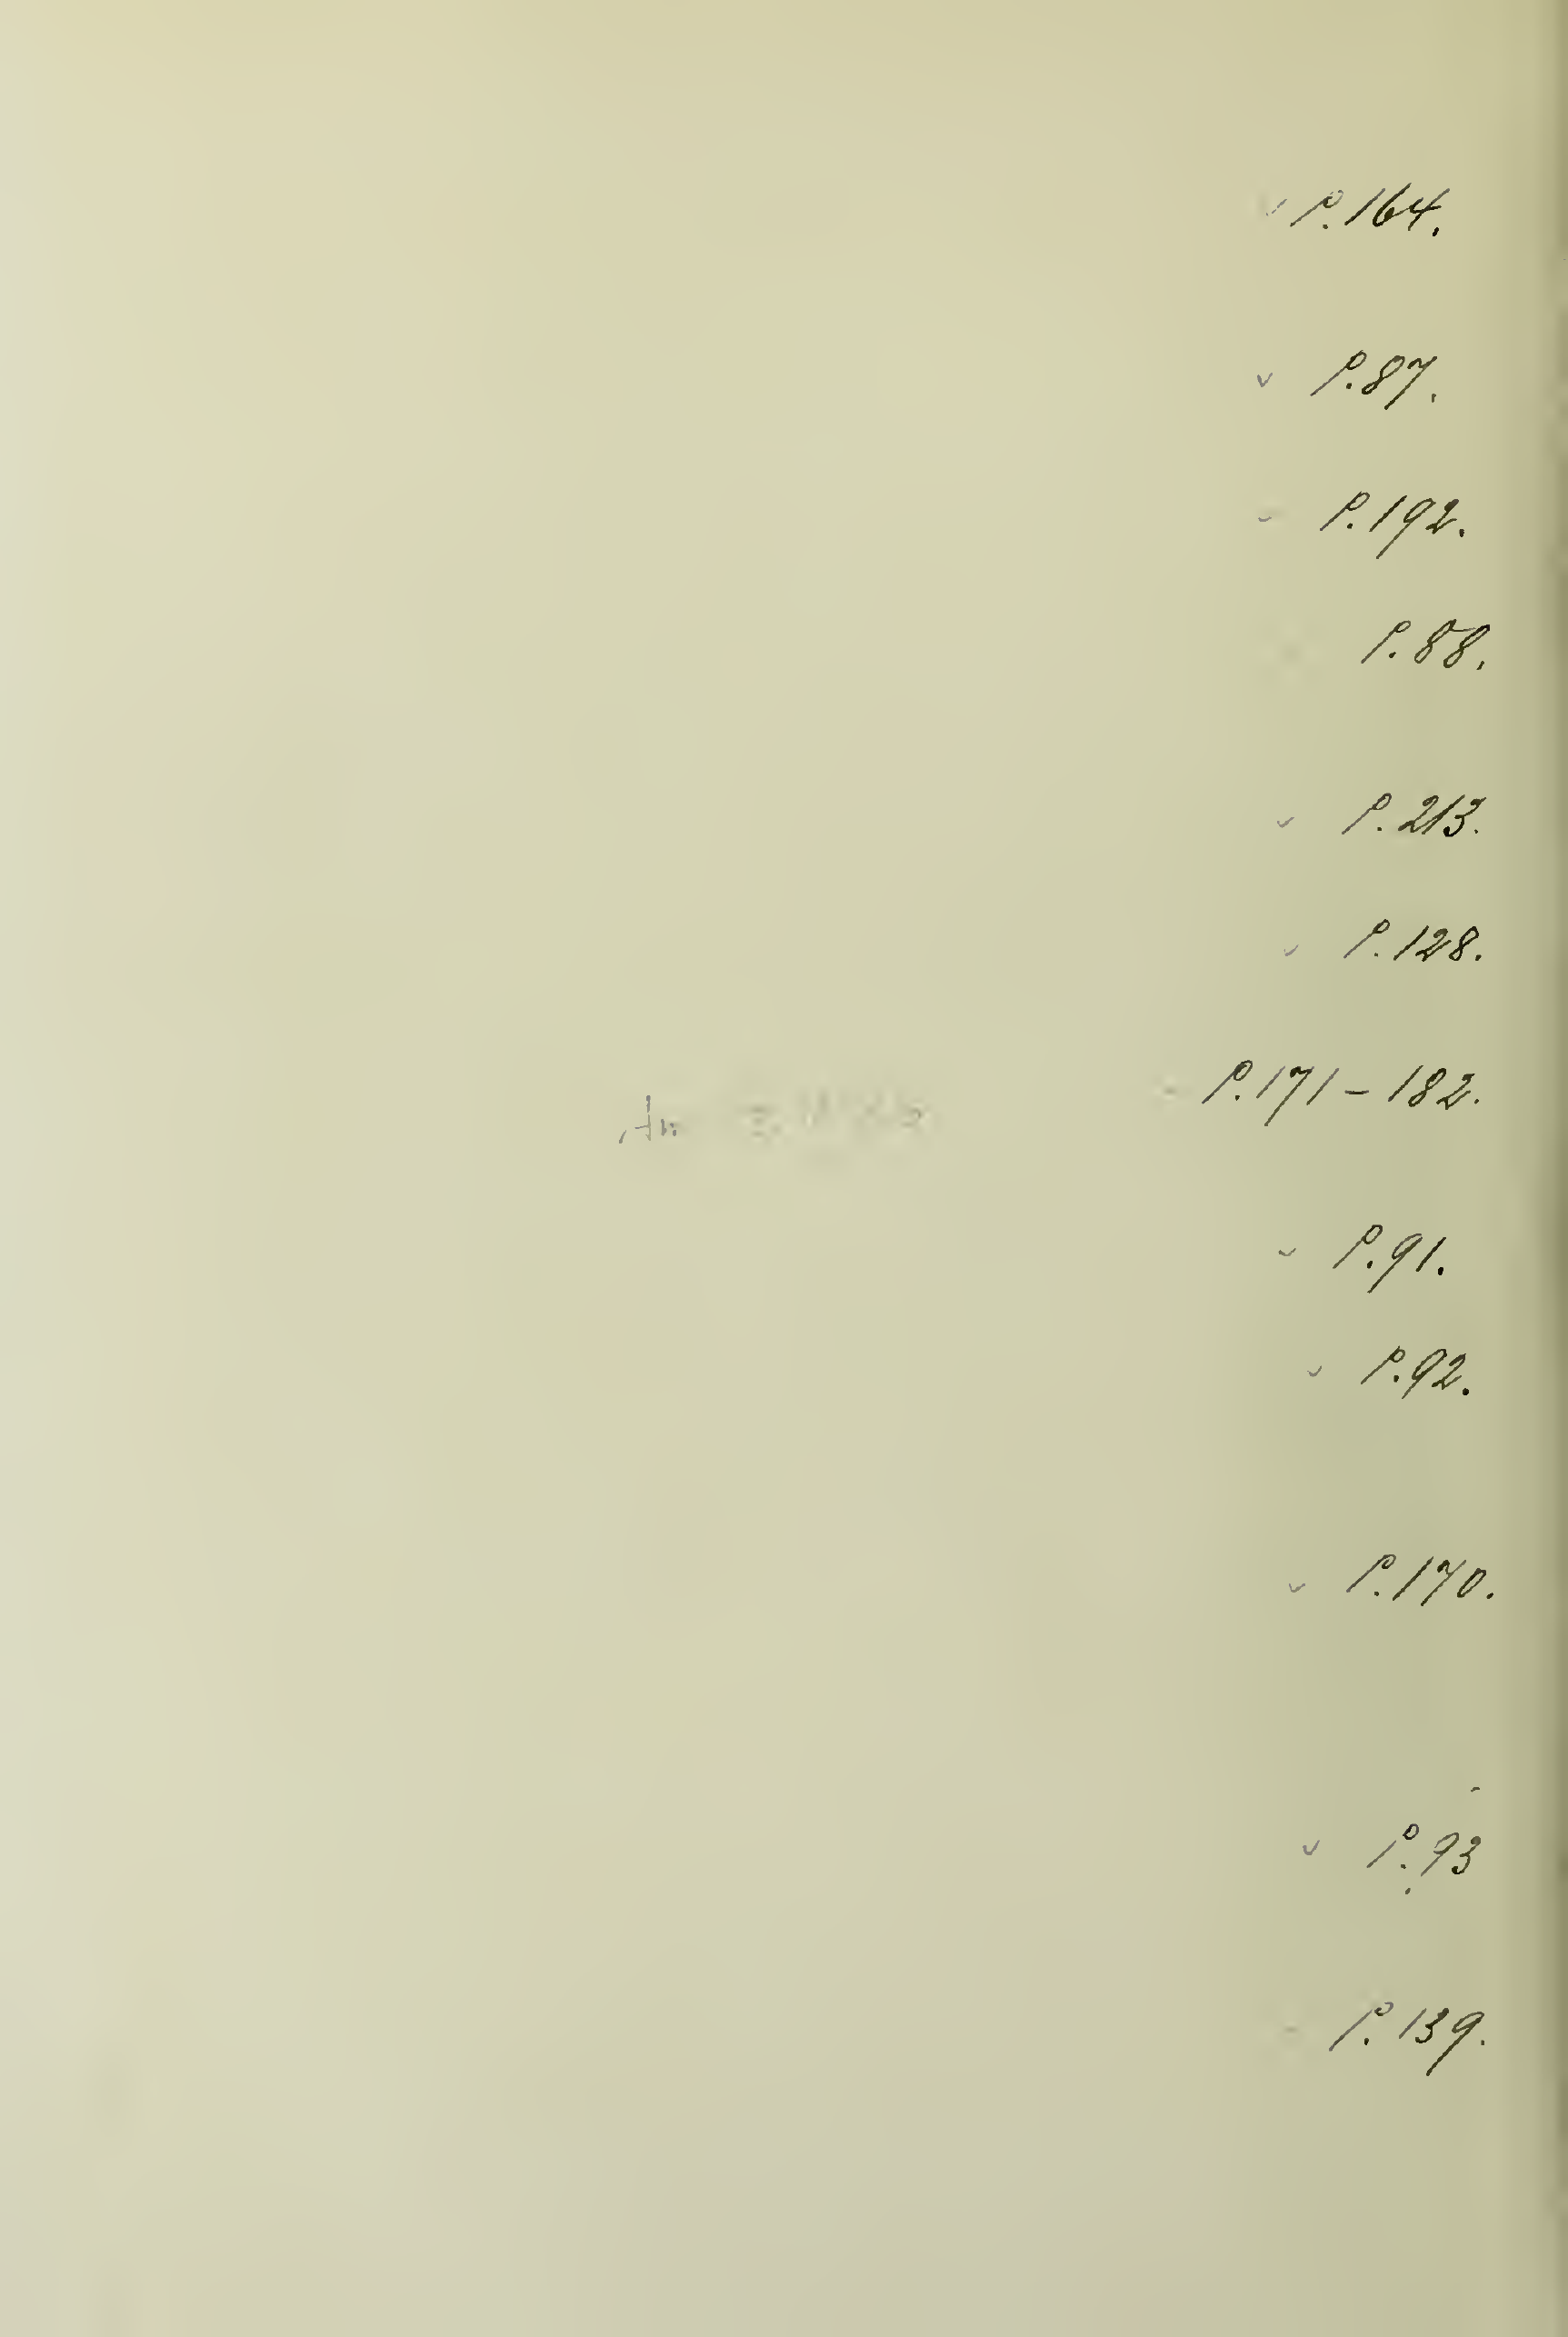 ✓ P. 164.
✓ P. 87.
✓ P. 192.
P. 88.
✓ P. 213.
✓ P. 128.
P. 171 – 182.
✓ P. 91.
✓ P. 92.
✓ P. 170.
✓ P. 93
P. 139.